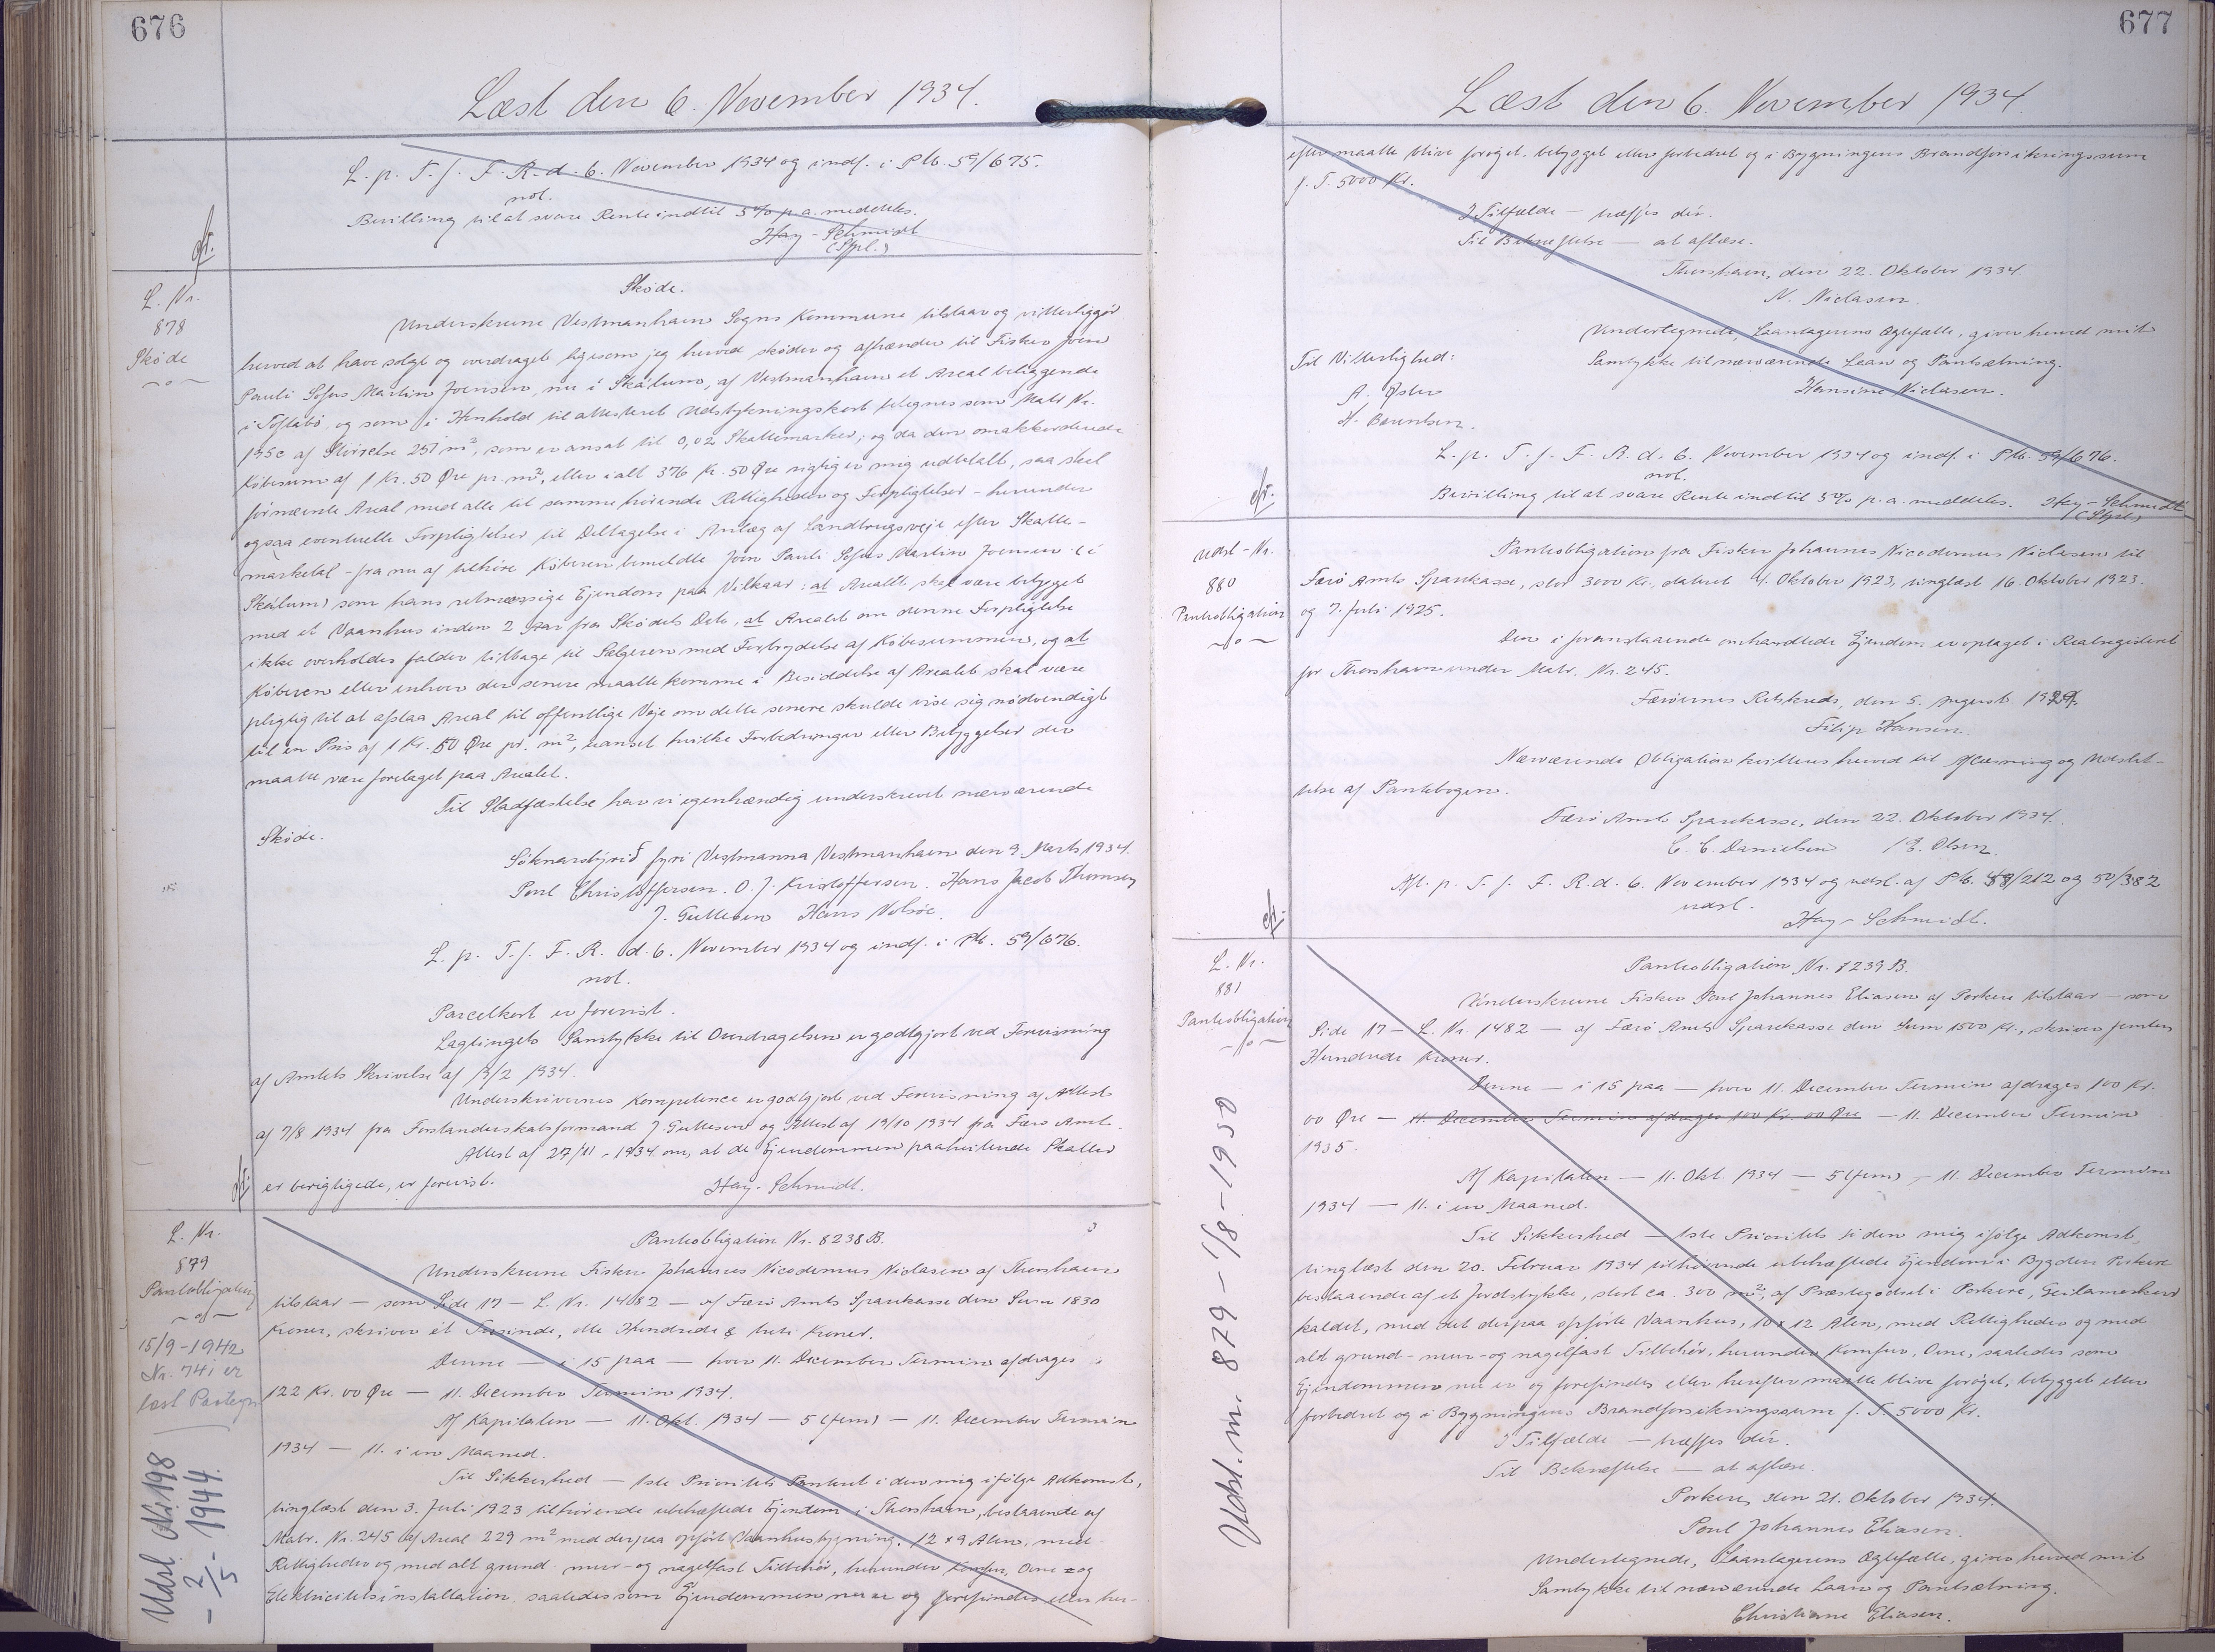 676
Læst den 6. November 1934.
L. p. T. f. F. R. d. 6. November 1934 og indf. i Ptb. 59/675.
not.
Bevilling til at svare Rente indtil 5% p.a. meddeles.
Hay-Schmidt
(Spl.)
L. Nr.
878
Skøde
Skøde.
Underskrevne Vestmanhavn Sogns Kommune tilstaar og vitterliggør
herved at have solgt og overdraget ligesom jeg herved skøder og afhænder til Fisker Joen
Pauli Sofus Martin Joensen, nu i Skálum, af Vestmanhavn et Areal beliggende
i Toftabø, og som i Henhold til attesteret Udstykningskort betegnes som Matr. Nr.
195c af Størrelse 251 m², som er ansat til 0,02 Skattemarker; og da den omakkorderede
Købesum af 1 Kr. 50 Øre pr. m², eller i alt 376 Kr. 50 Øre rigtig er mig udbetalt, saa skal
førnævnte Areal med alle til samme hørende Rettigheder og Forpligtelser - herunder
ogsaa eventuelle Forpligtelser til Deltagelse i Anlæg af Landbrugsveje efter Skatte-
marketal - fra nu af tilhøre Køberen bemeldte Joen Pauli Sofus Martin Joensen (i
Skálum) som hans retmæssige Ejendom paa Vilkaar: at Arealet skal være bebygget
med et Vaanhus inden 2 Aar fra Skødets Dato, at Arealet om denne Forpligtelse
ikke overholdes falder tilbage til Sælgeren med Fortrydelse af Købesummen, og at
Køberen eller enhver der senere maatte komme i Besiddelse af Arealet skal være
pligtig til at afstaa Areal til offentlige Veje om dette senere skulde vise sig nødvendigt
til en Pris af 1 Kr. 50 Øre pr. m², uanset hvilke Forbedringer eller Bebyggelser der
maatte være foretaget paa Arealet.
Til Stadfæstelse har vi egenhændig underskrevet nærværende
Skøde.
Sóknarstýrið fyri Vestmanna Vestmanhavn den 9. Marts 1934.
Poul Christoffersen. O. J. Kristoffersen. Hans Jacob Thomsen
J. Gullesen Hans Volsøe.
L. p. T. f. F. R. d. 6. November 1934 og indf. i Ptb. 59/676.
not.
Parcelkort er forevist.
Lagtingets Samtykke til Overdragelsen er godtgjort ved Forevisning
af Amtets Skrivelse af 13/2 1934.
Underskrivernes Kompetence er godtgjort ved Forevisning af Attest
af 7/8 1934 fra Forstanderskabsformand J. Gullesen og Attest af 19/10 1934 fra Færø Amt.
Attest af 27/11 - 1934 om, at de Ejendommen paahvilende Skatter
er berigtigede, er forevist.
Hay-Schmidt.
L. Nr.
879
Pantobligation
15/9-1942
Nr. 741 er
læst Paategn
Udsl. Nr. 198
- 2/5 - 1944.
Pantobligation Nr. 8238 B.
Underskrevne Fisker Johannes Nicodemus Niclasen af Thorshavn
tilstaar — som Side 17 — L. Nr. 1482 — af Færø Amts Sparekasse den Sum 1830
Kroner, skriver et Tusinde, otte Hundrede & treti Kroner.
Denne — i 15 paa — hver 11. December Termin afdrages
122 Kr. 00 Øre — 11. December Termin 1934.
Af Kapitalen — 11. Okt. 1934 — 5 (fem) — 11. December Termin
1934 — 11. i en Maaned.
Til Sikkerhed — 1ste Prioritets Panteret i den mig ifølge Adkomst,
tinglæst den 3. Juli 1923 tilhørende ubehæftede Ejendom i Thorshavn, bestaaende af
Matr. Nr. 245 af Areal 229 m² med derpaa opført Vaanhusbygning, 12 x 9 Alen, med
Rettigheder og med alt grund- mur- og nagelfast Tilbehør, herunder Komfur, Ovne og
Elektricitetsinstallation, saaledes som Ejendommen nu er og forefindes eller her-
677
Læst den 6. November 1934.
efter maatte blive forøget, bebygget eller forbedret og i Bygningens Brandforsikringssum
f. T. 5000 Kr.
I Tilfælde — træffes dér.
Til Bekræftelse — at aflæse.
Thorshavn, den 22. Oktober 1934
N. Niclasen.
Undertegnede, Laantagerens Ægtefælle, giver herved mit
Samtykke til nærværende Laan og Pantsætning.
Hansine Niclasen.
Til Vitterlighed:
A. Øster
H. Berentsen.
L. p. T. f. F. R. d. 6. November 1934 og indf. i Ptb. 59/676.
not.
Bevilling til at svare Rente indtil 5% p.a. meddeles. Hay-Schmidt
(Spl.)
Udsl - Nr.
880
Pantobligation
Pantobligation fra Fisker Johannes Nicodemus Niclasen til
Færø Amts Sparekasse, stor 3000 Kr., dateret 4. Oktober 1923, tinglæst 16. Oktober 1923
og 7. Juli 1925.
Den i foranstaaende omhandlede Ejendom er optaget i Realregisteret
for Thorshavn under Matr. Nr. 245.
Færøernes Retskreds, den 5. August 1929.
Filip Hansen.
Nærværende Obligation kvitteres herved til Aflæsning og Udslet-
telse af Pantebogen.
Færø Amts Sparekasse, den 22. Oktober 1934.
C. C. Danielsen / E. Olsen.
Afl. p. T. f. F. R. d. 6. November 1934 og udsl. af Ptb. 48/212 og 50/382
udsl.
Hay-Schmidt.
L. Nr.
881
Pantobligation
Udsl. nr. 879 - 1/8 - 1950
Pantobligation Nr. 1239 B.
Underskrevne Fisker Poul Johannes Eliasen af Porkere tilstaar — som
Side 17 — L. Nr. 1482 — af Færø Amts Sparekasse den Sum 1500 Kr., skriver femten
Hundrede Kroner.
Denne — i 15 paa — hver 11. December Termin afdrages 100 Kr.
00 Øre — 11. December Termin afdrages 100 Kr. 00 Øre — 11. December Termin
1935.
Af Kapitalen — 11. Okt. 1934 — 5 (fem) — 11. December Termin
1934 — 11. i en Maaned.
Til Sikkerhed — 1ste Prioritets i den mig ifølge Adkomst,
tinglæst den 20. Februar 1934 tilhørende ubehæftede Ejendom i Bygden Porkere
bestaaende af et Jordstykke, stort ca. 300 m², af Præstegodset i Porkere, Geilamerkur
kaldet, med det derpaa opførte Vaanhus, 10 x 12 Alen, med Rettigheder og med
alt grund- mur- og nagelfast Tilbehør, herunder Komfur, Ovne, saaledes som
Ejendommen nu er og forefindes eller herefter maatte blive forøget, bebygget eller
forbedret og i Bygningens Brandforsikringssum f. T. 5000 Kr.
I Tilfælde — træffes dér.
Til Bekræftelse — at aflæse.
Porkere, den 21. Oktober 1934.
Poul Johannes Eliasen.
Undertegnede, Laantagerens Ægtefælle, giver herved mit
Samtykke til nærværende Laan og Pantsætning.
Christiane Eliasen.